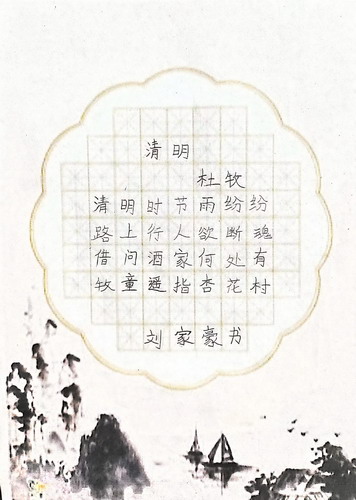 清明
杜牧
清明时节雨纷纷
路上行人欲断魂
借问酒家何处有
牧童遥指杏花村
刘家豪书